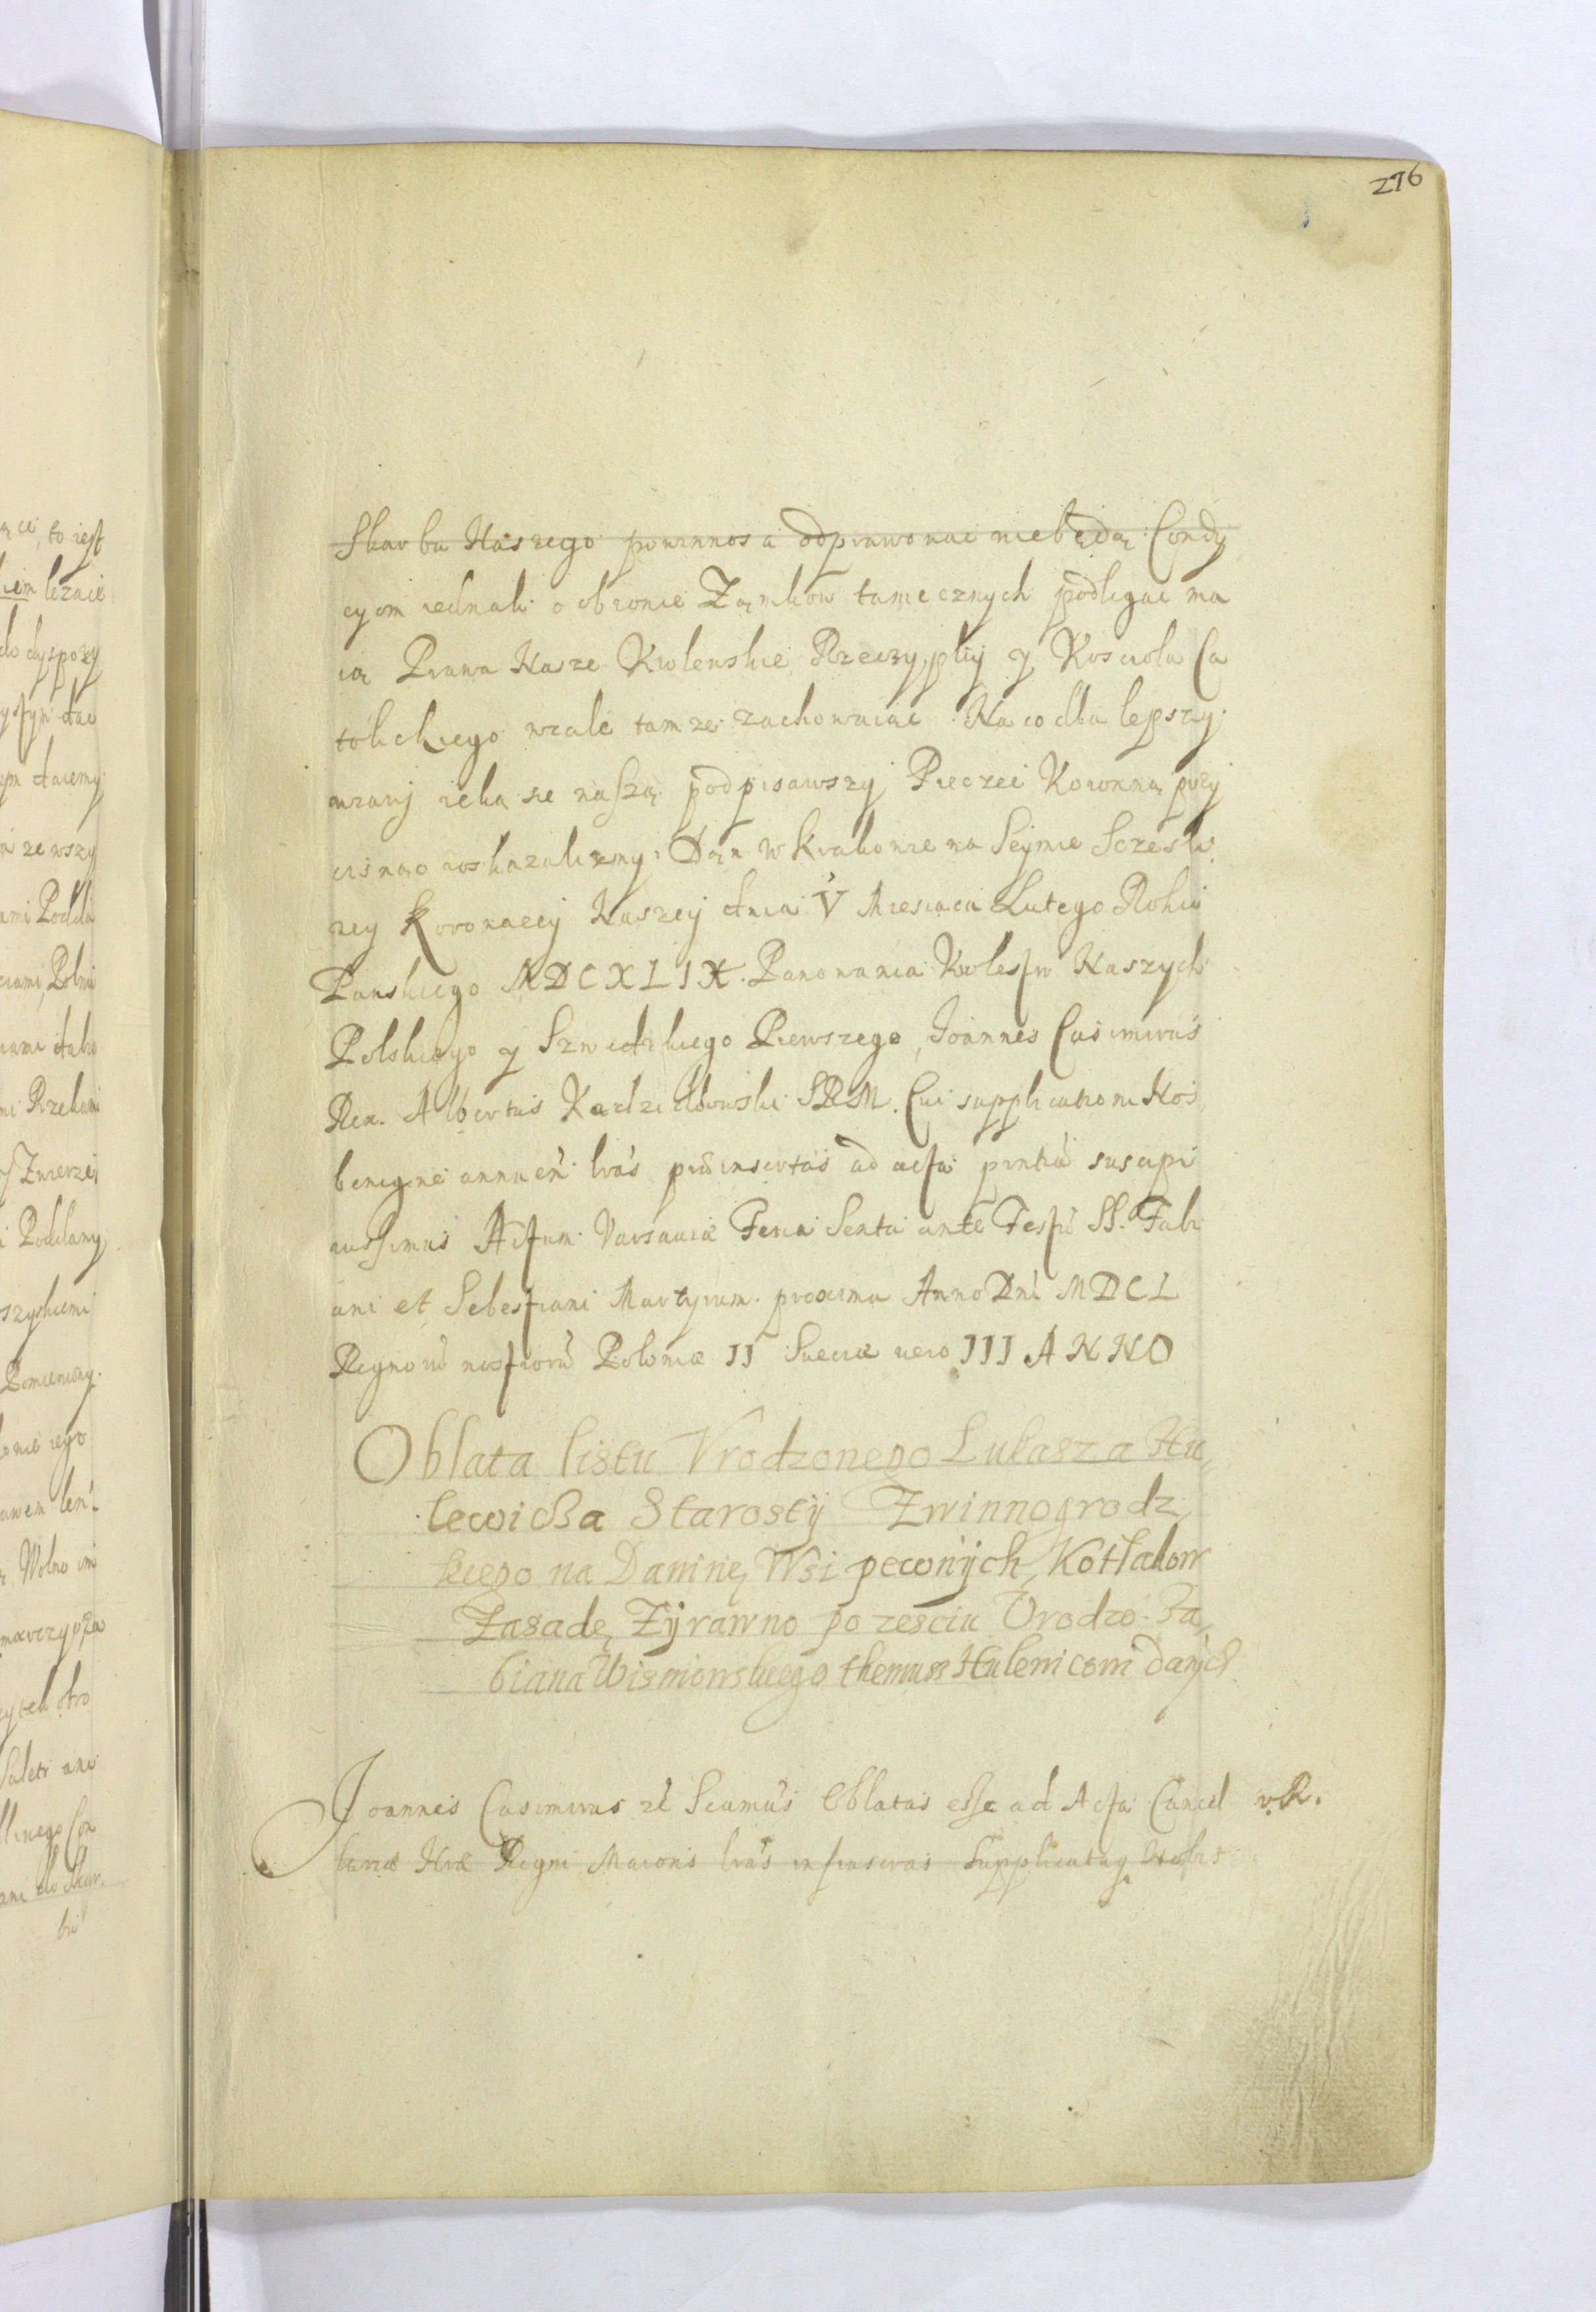 276
Skarbu Naszego powinnosci odprawowac niebędą: Condy
cyom iednak o obronie Zamkow tamecznych podlegac ma
ią Prawa Nasze Krolenskie, Rzeczyplitij y Kosciola Ca
tolickiego wcale tamze zachowuiąc. Na co dla lepszej
wiarij ręką się naszą podpisawszy Pieczęć Koronną przy
cisnąc roskazalizmy. Dan w Krakowie na Seymie Szczesli
wey Koronaciej Naszeij dnia V Miesiąca Lutego Roku
Panskiego MDCXLIX. Panowania Krolestw Naszych
Polskiego y Szwedzkiego Pierwszego, Joannes Casimirus
Rex. Albertus Kadzidlowski SRM. Cui supplicationi Nos
benigne annuen. lras pninsertas ad acta pntia suscipi
iussimus Actum Varsaviæ Feria Sexta ante Festu SS. Fabi
ani et Sebestiani Martyrum proxima Anno Dni MDCL
Regnorũ nostrorũ Poloniæ II Sueciæ vero III ANNO
Oblata listu Vrodzonego Lukasza Hu
lewicza Starostij Zwinnogrodz
kiego na Daninę Wsi pewnijch, Kotlakow
Zasadę, Zijrawno po zesciu Vrodzo. Fa
biana Wismowskiego themuss Hulewicowi danijch
Joannes Casimirus zc̃ Scimus Oblatas esse ad Acta Cancel v.R.
lariæ Nræ Regni Maioris lras infrascras Supplicatuq Nobis
ące, to iest
kiem leznie
do dyspozy
daiemy
ze wszy
ami Podda
Zwierze
Poddany
szyskiemi
Pomieniony
Wolno im
ani do Skar.
bu